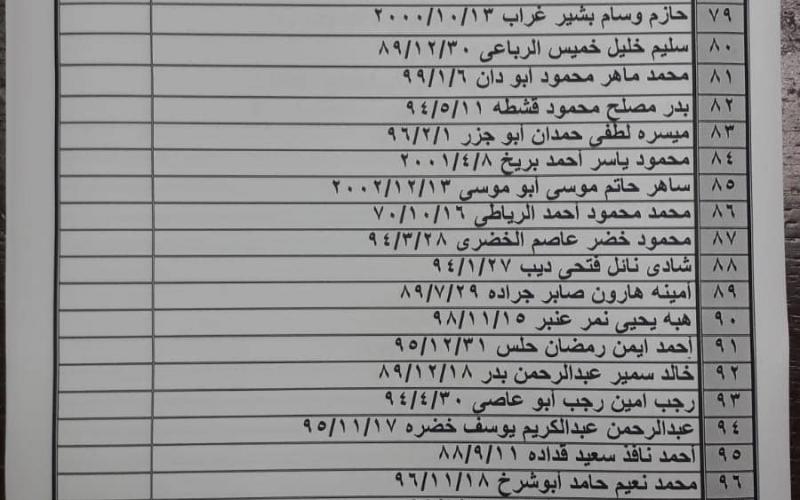 ٧٩ حازم وسام بشير غراب ٢٠٠٠/١٠/١٣
٨٠ سليم خليل خميس الرباعى ٨٩/١٢/٣٠
٨١ محمد ماهر محمود ابو دان ٩٩/١/٦
٨٢ بدر مصلح محمود قشطه ٩٤/٥/١١
٨٣ ميسره لطفى حمدان أبو جزر ٩٦/٢/١
٨٤ محمود ياسر أحمد بريخ ٢٠٠١/٤/٨
٨٥ ساهر حاتم موسى أبو موسى ٢٠٠٢/١٢/١٣
٨٦ محمد محمود أحمد الرياطى ٧٠/١٠/١٦
٨٧ محمود خضر عاصم الخضرى ٩٤/٣/٢٨
٨٨ شادى نائل فتحى ديب ٩٤/١/٢٧
٨٩ أمينه هارون صابر جراده ٨٩/٧/٢٩
٩٠ هبه يحيى نمر عنبر ٩٨/١١/١٥
٩١ احمد ايمن رمضان حلس ٩٥/١٢/٣١
٩٢ خالد سمير عبدالرحمن بدر ٨٩/١٢/١٨
٩٣ رجب امين رجب أبو عاصى ٩٤/٤/٣٠
٩٤ عبدالرحمن عبدالكريم يوسف خضره ٩٥/١١/١٧
٩٥ أحمد نافذ سعيد قداده ٨٨/٩/١١
٩٦ محمد نعيم حامد أبوشرخ ٩٦/١١/١٨